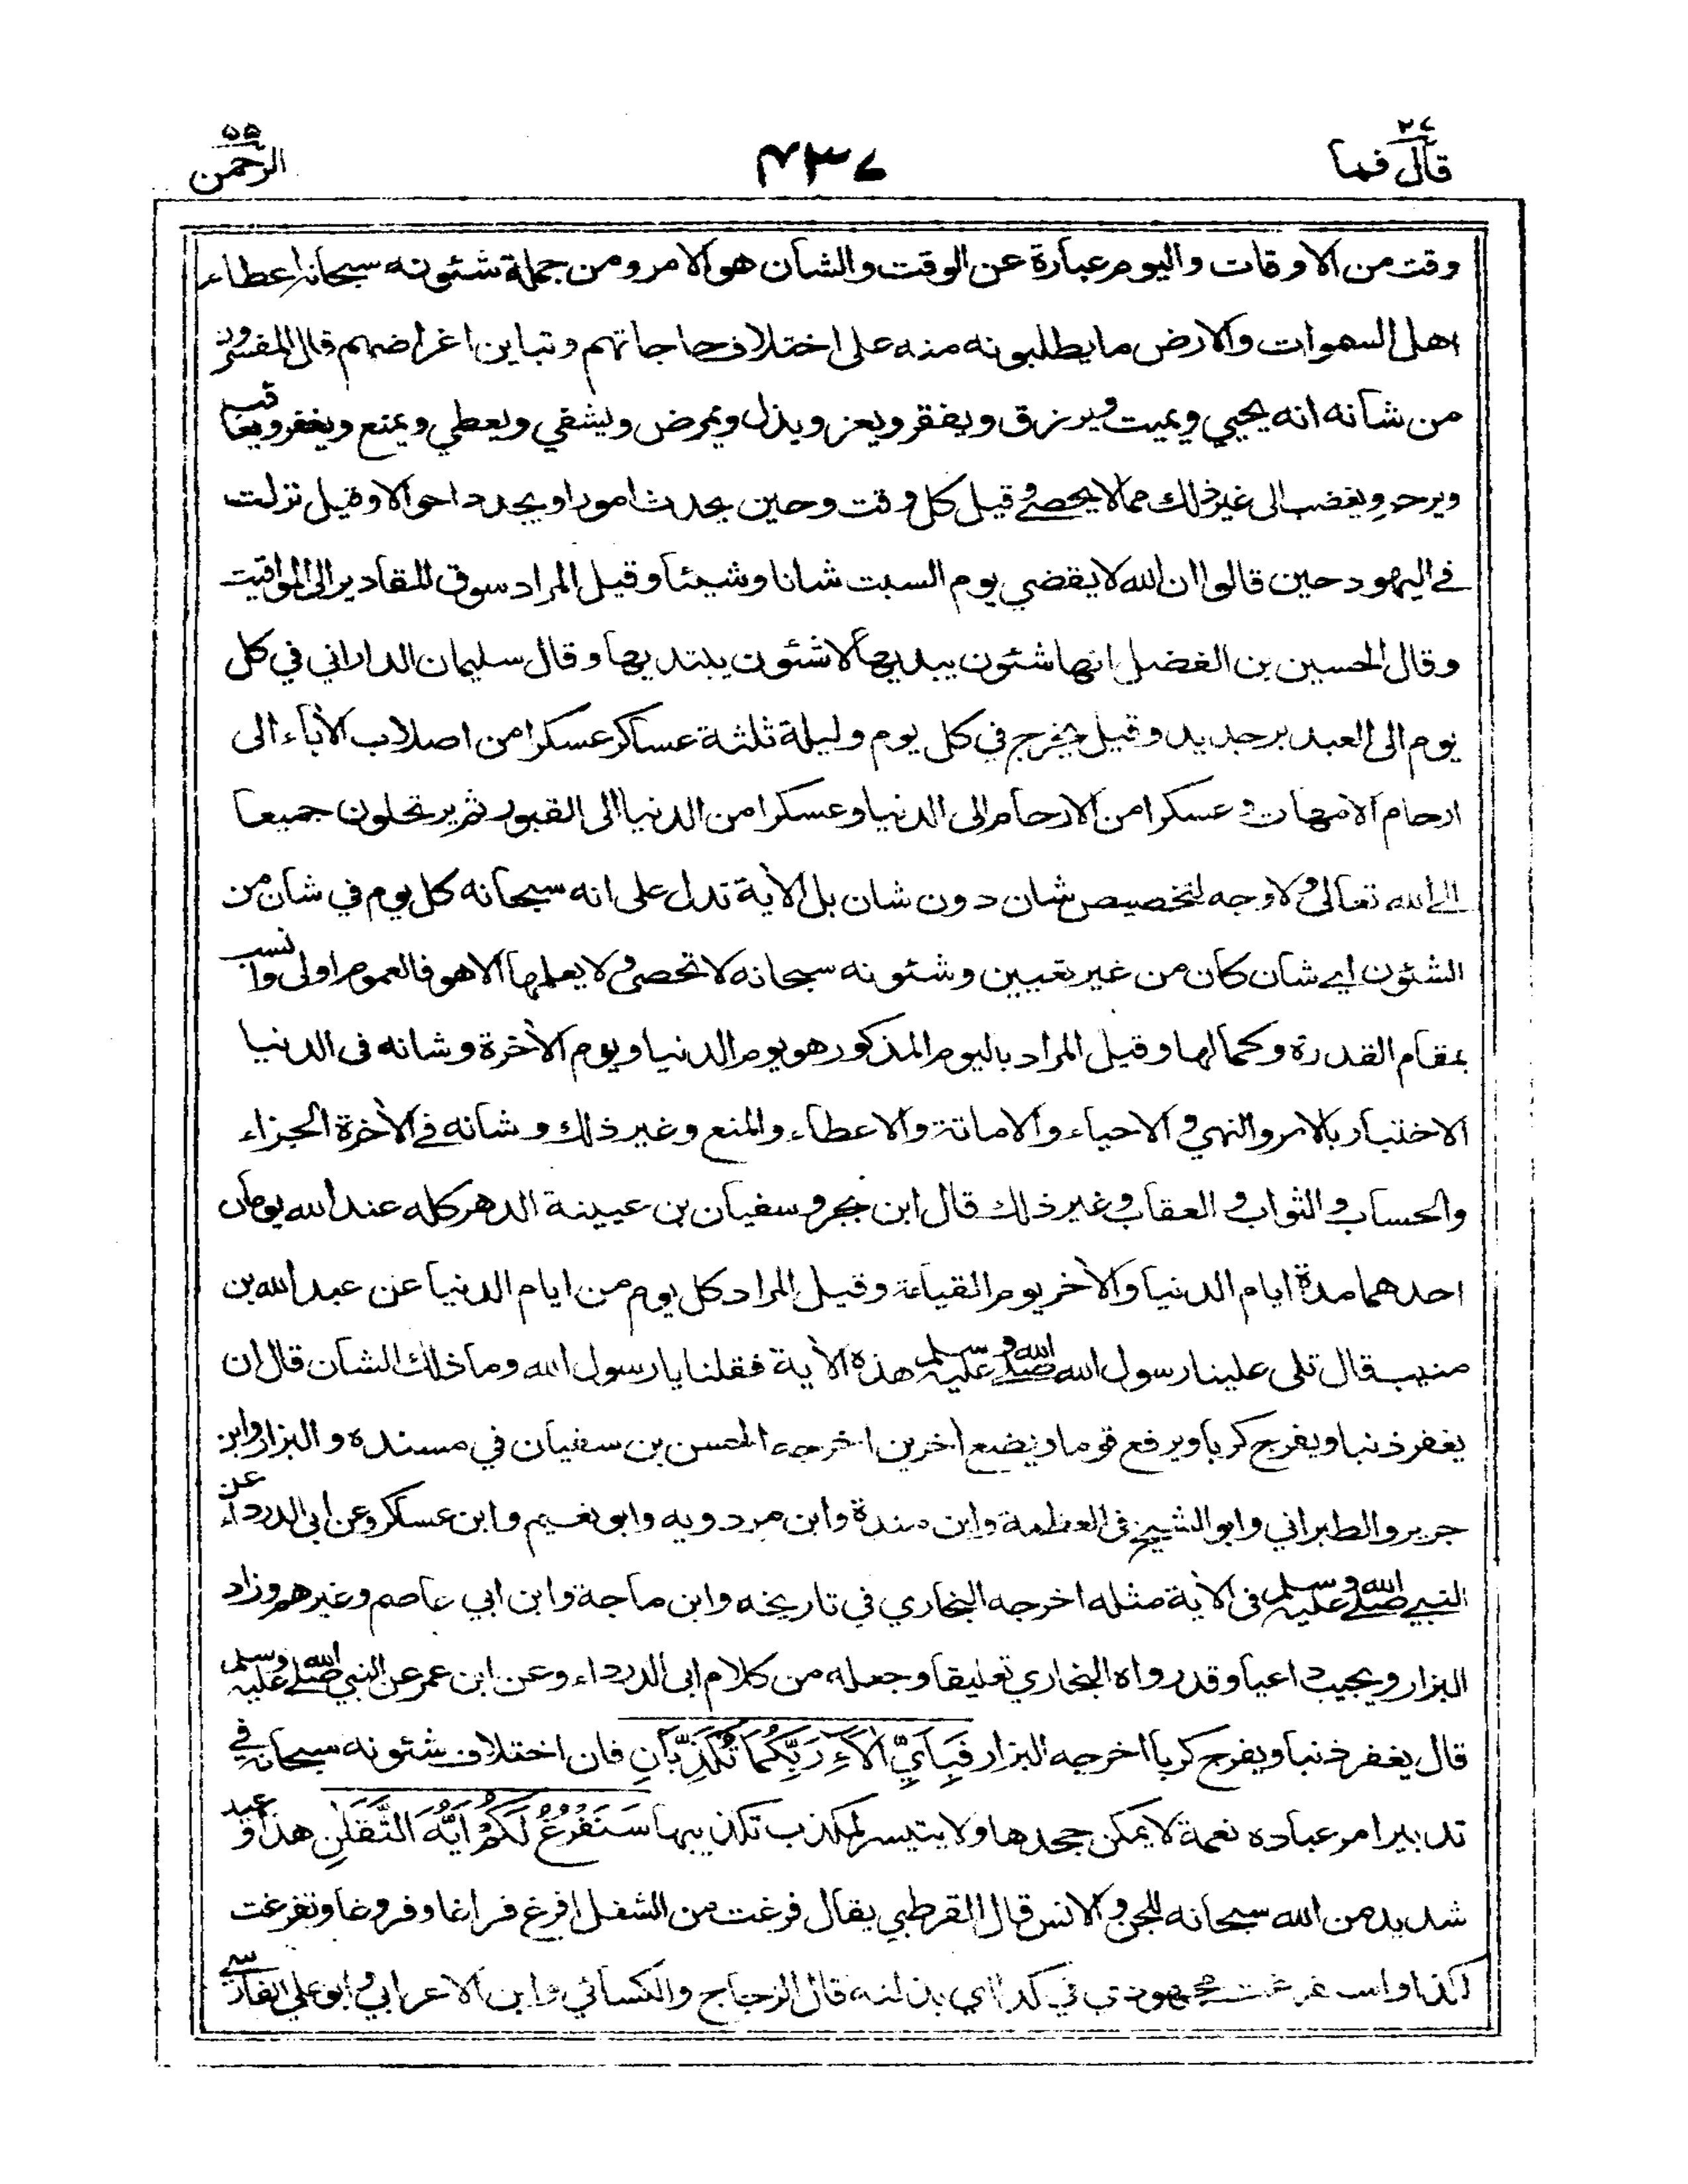 قال فما ٢٧
٤٣٧
الرحمن ٥٥
وقت من الاوقات واليوم عبارة عن الوقت والشان هو الامر ومن جملة شئونه سبحانه اعطاء
اهل السموات والارض ما يطلبونه منه على اختلاف حاجاتهم وتباين اغراضهم قال المفسرون
من شانه انه يحيي ويميت ويرزق ويفقر ويعز ويذل ويمرض ويشفي ويعطي ويمنع ويغفر ويعاقب
ويرحم ويغضب الى غير ذلك مما لا يحصى وقيل كل وقت وحين يحدث امورا ويجدد احوالا وقيل نزلت
في اليهود حين قالوا ان الله لا يقضي يوم السبت شانا وشيئا وقيل المراد سوق المقادير الى المواقيت
وقال الحسين بن الفضل انها شئون يبديها لا شئون يبتديها وقال سليمان الداراني في كل
يوم الى العبد بر جديد وقيل يخرج في كل يوم وليلة ثلثة عساكر عسكرا من اصلاب الأباء الى
ارحام الامهات وعسكرا من الارحام الى الدنيا وعسكرا من الدنيا الى القبور ثم يرتحلون جميعا
الى الله تعالى ولا وجه لتخصيص شان دون شان بل الأية تدل على انه سبحانه كل يوم في شان من
الشئون اي شان كان من غير تعيين وشئونه سبحانه لا تحصى ولا يعلمها الا هو فالعموم اولى وانسب
بمقام القدرة وكمالها وقيل المراد باليوم المذكور هو يوم الدنيا ويوم الأخرة وشانه في الدنيا
الاختبار بالامر والنهي والاحياء والاماتة والاعطاء والمنع وغير ذلك وشانه في الأخرة الجزاء
والحساب والثواب والعقاب وغير ذلك قال ابن بحر وسفيان بن عيينة الدهر كله عند الله يومان
احدهما مدة ايام الدنيا والأخر يوم القيامة وقيل المراد كل يوم من ايام الدنيا عن عبد الله بن
منيب قال تلى علينا رسول الله صلى الله عليه وسلم هذه الأية فقلنا يا رسول الله وما ذلك الشان قال ان
يغفر ذنبا ويفرج كربا ويرفع قوما ويضع اخرين اخرجه الحسن بن سفيان في مسنده والبزار وابن
جرير والطبراني وابو الشيخ في العظمة وابن مندة وابن مردويه وابو نعيم وابن عسكر وعن ابي الدرداء عن
النبي صلى الله عليه وسلم في الأية مثله اخرجه البخاري في تاريخه وابن ماجة وابن ابي عاصم وغيرهم وزاد
البزار ويجيب داعيا وقد رواه البخاري تعليقا وجعله من كلام ابى الدرداء وعن ابن عمر عن النبي صلى الله عليه وسلم
قال يغفر ذنبا ويفرج كربا اخرجه البزار فَبِاَيِّ اٰلَاءِ رَبِّكُمَا تُكَذِّبَانِ فان اختلاف شئونه سبحانه في
تدبير امر عباده نعمة لا يمكن جحدها ولا يتيسر لمكذب تكذيبها سَنَفْرُغُ لَكُمْ اَيُّهَ الثَّقَلٰنِ هذا وعيد
شديد من الله سبحانه للجن والانس قال القرطبي يقال فرغت من الشغل افرغ فراغا وفروغا وتفرغت
لكذا واستفرغت مجهودي في كذا اي بذلته قال الزجاج والكسائي وابن الاعرابي وابو علي الفارسي